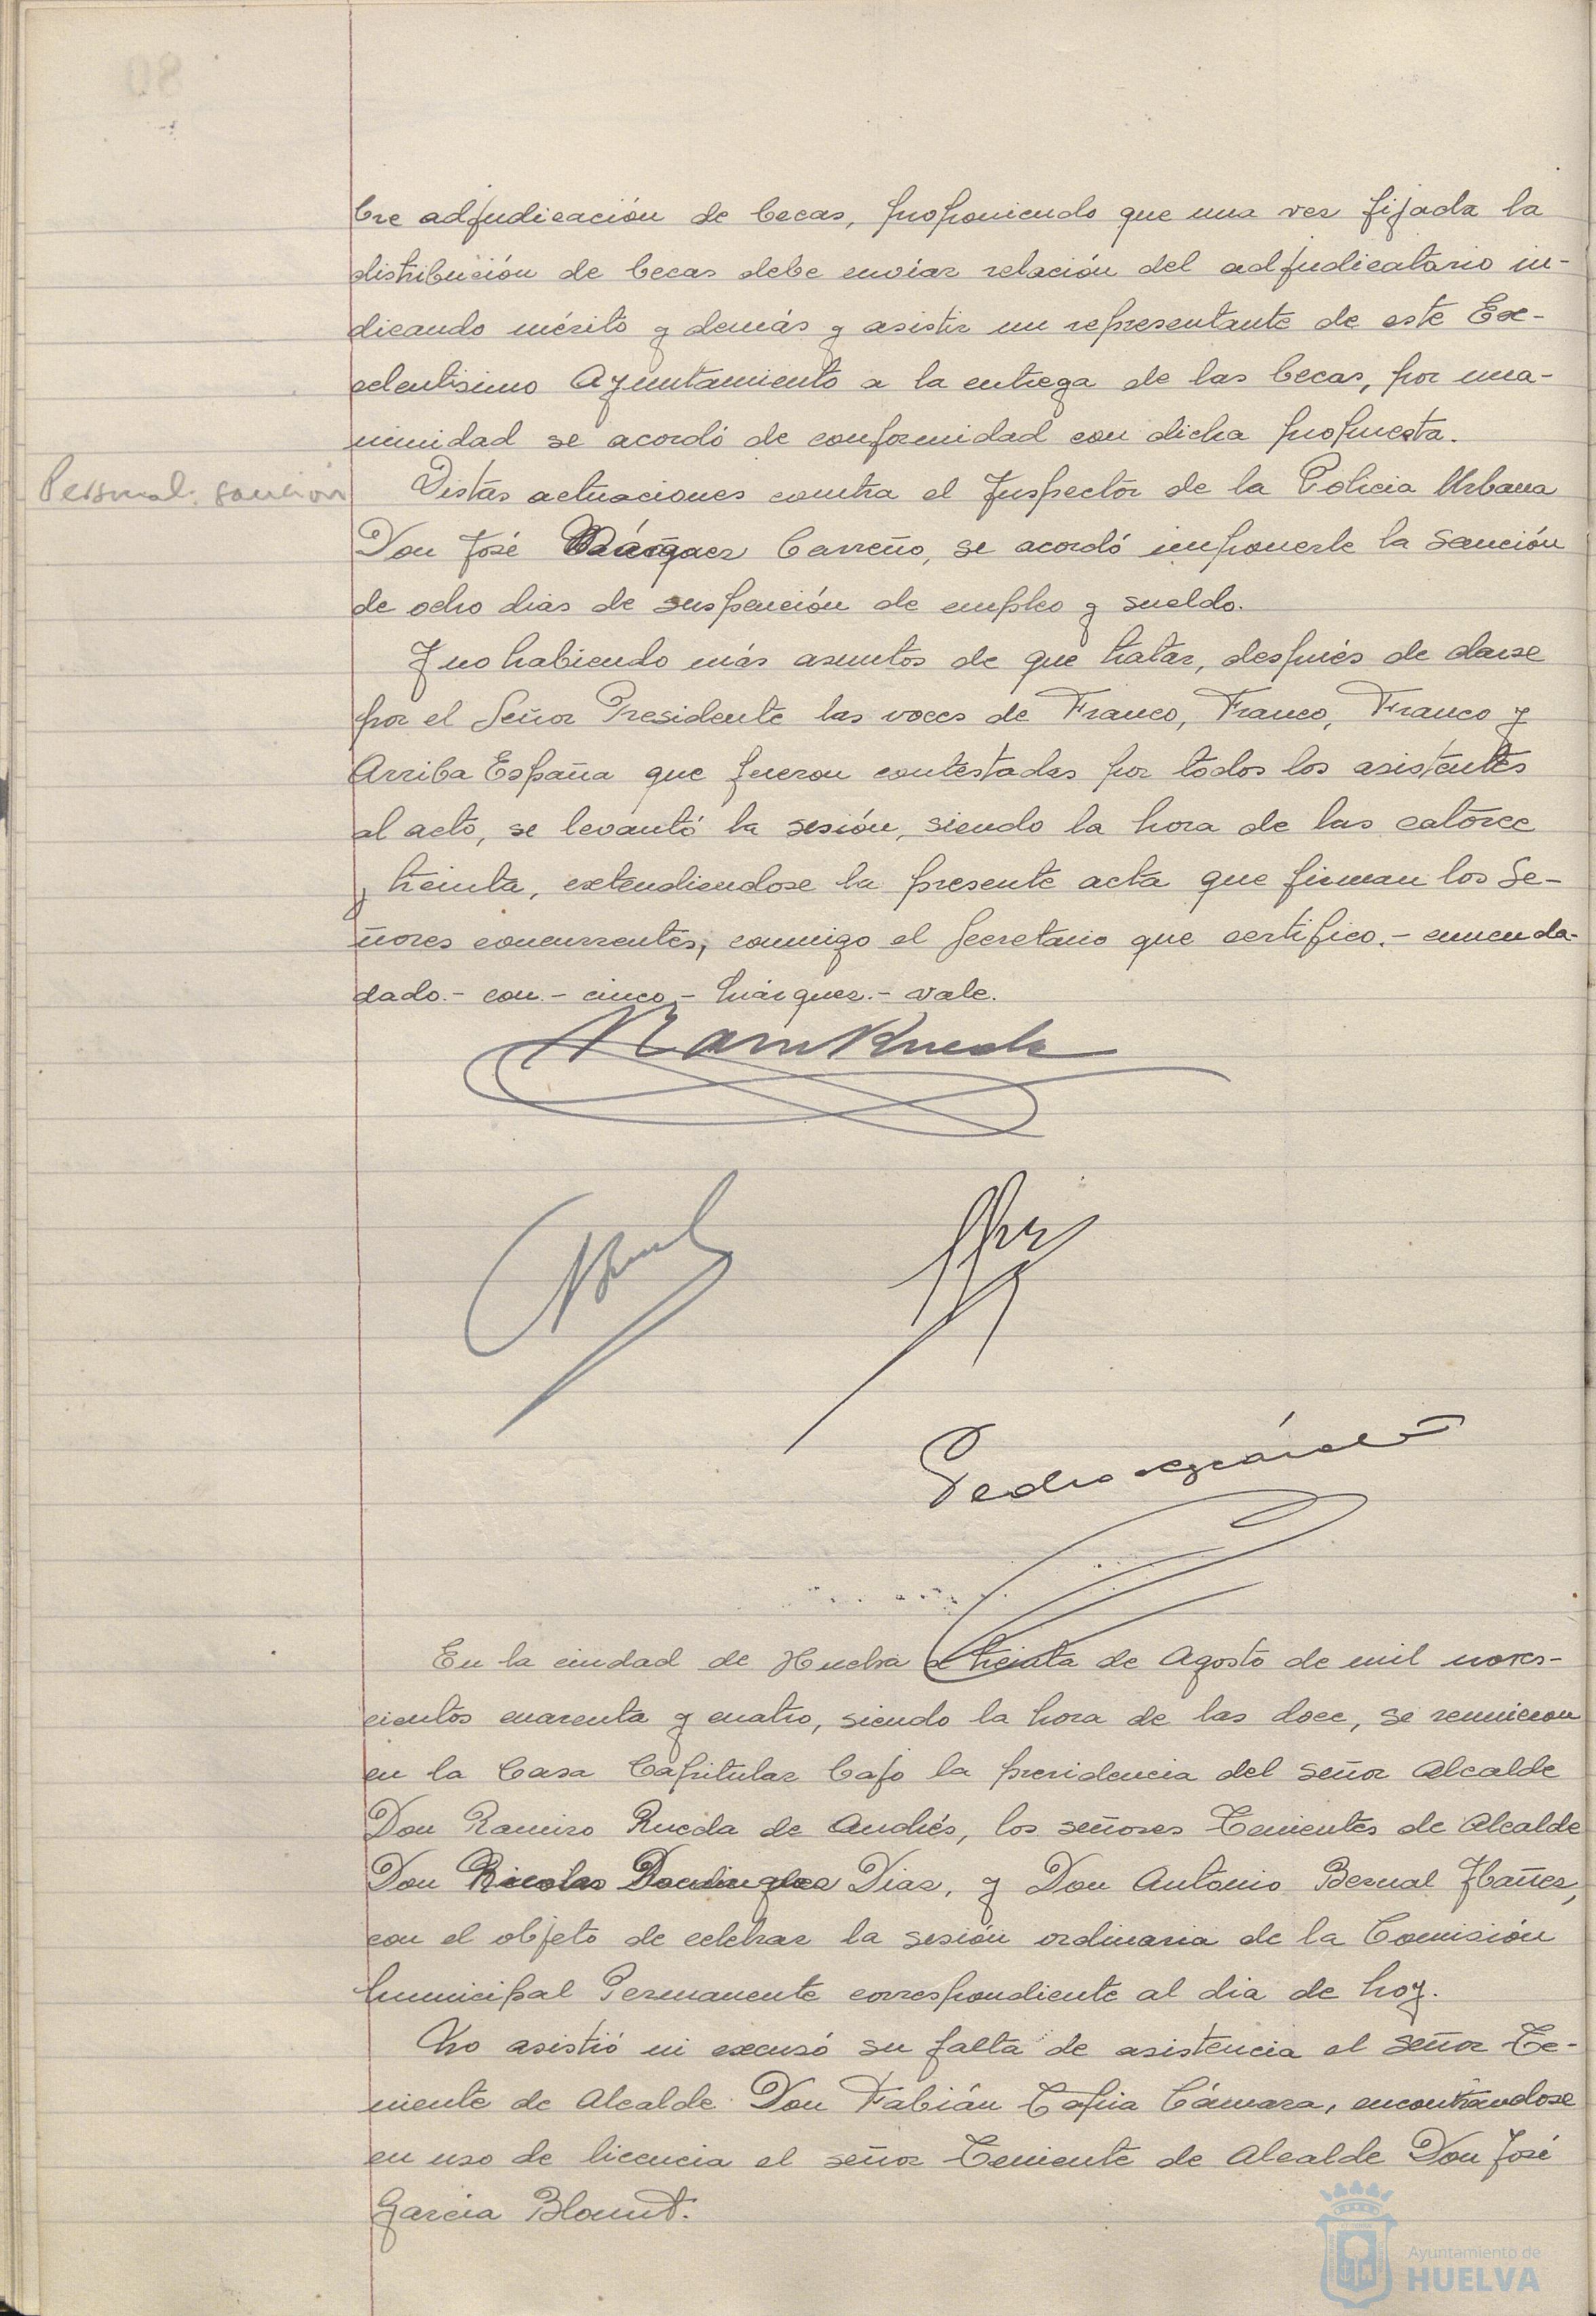 bre adjudicación de becas, proponiendo que una vez fijada la
distribución de becas debe enviar relación del adjudicatario in-
dicando mérito y demás y asistir un representante de este Ex-
celentisimo Ayuntamiento a la entrega de las becas, por una-
nimidad se acordó de conformidad con dicha propuesta.
Personal: sanción
Vistas actuaciones contra el Inspector de la Policia Urbana
Don José Márquez Carreño, se acordó imponerle la sanción
de ocho dias de suspención de empleo y sueldo.
Y no habiendo más asuntos de que tratar, después de darse
por el Señor Presidente las voces de Franco, Franco, Franco y
Arriba España que fueron contestadas por todos los asistentes
al acto, se levantó la sesión, siendo la hora de las catorce
y treinta, extendiendose la presente acta que firman los Se-
ñores concurrentes, conmigo el Secretario que certifico.- enmenda-
dado.- con.- cinco.- Márquez.- vale.
Ram Rueda
Pedro
En la ciudad de Huelva a treinta de Agosto de mil noves-
cientos cuarenta y cuatro, siendo la hora de las doce, se reunieron
en la Casa Capitular bajo la presidencia del señor Alcalde
Don Ramiro Rueda de Andrés, los señores Tenientes de Alcalde
Don Nicolas Dominguez Diaz, y Don Antonio Bernal Ibañez,
con el objeto de celebrar la sesión ordinaria de la Comisión
Municipal Permanente correspondiente al dia de hoy.
No asistió ni excusó su falta de asistencia el señor Te-
niente de Alcalde Don Fabián Tapia Cámara, encontrandose
en uso de licencia el señor Teniente de Alcalde Don José
Garcia Blount.
Ayuntamiento de
HUELVA